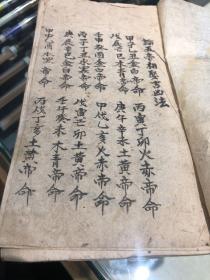 五帝相法
甲子乙丑金白帝命 丙寅丁卯火赤帝命
戊辰己巳木青帝命 庚午辛未土黃帝命
壬申癸酉金白帝命 甲戌乙亥火赤帝命
丙子丁丑水黑帝命 戊寅己卯土黃帝命
庚辰辛巳金白帝命 壬午癸未木青帝命
甲申乙酉水黑帝命 丙戌丁亥土黃帝命